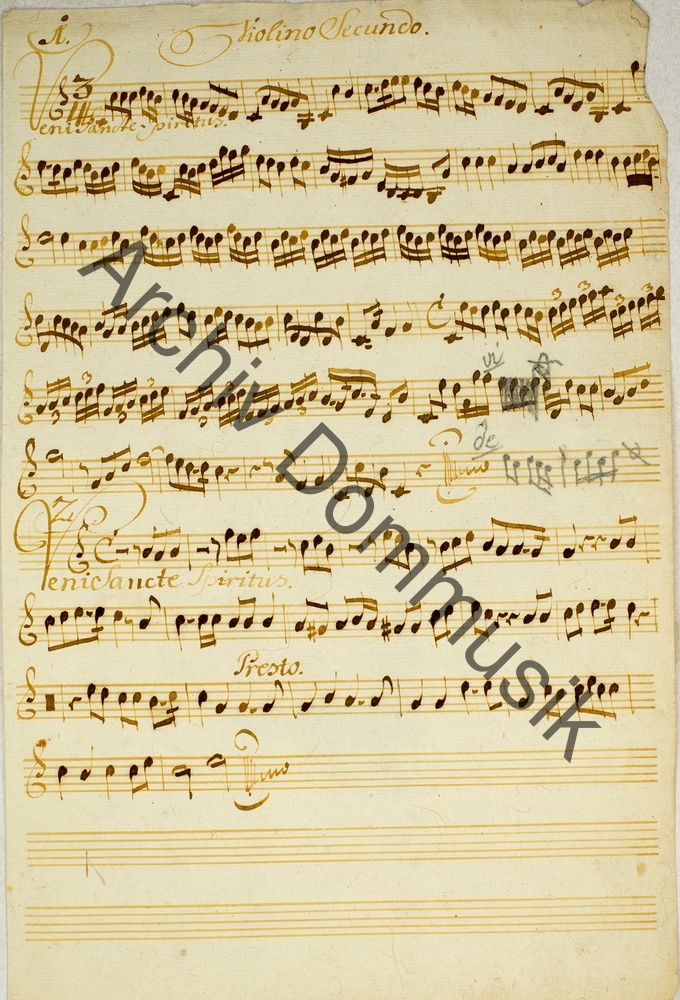 1. Violino Secundo.
Veni Sancte Spiritus.
3
3 3 3 3
3 3 3
vi
de
2
Veni Sancte Spiritus.
Presto.
Archiv Dommusik